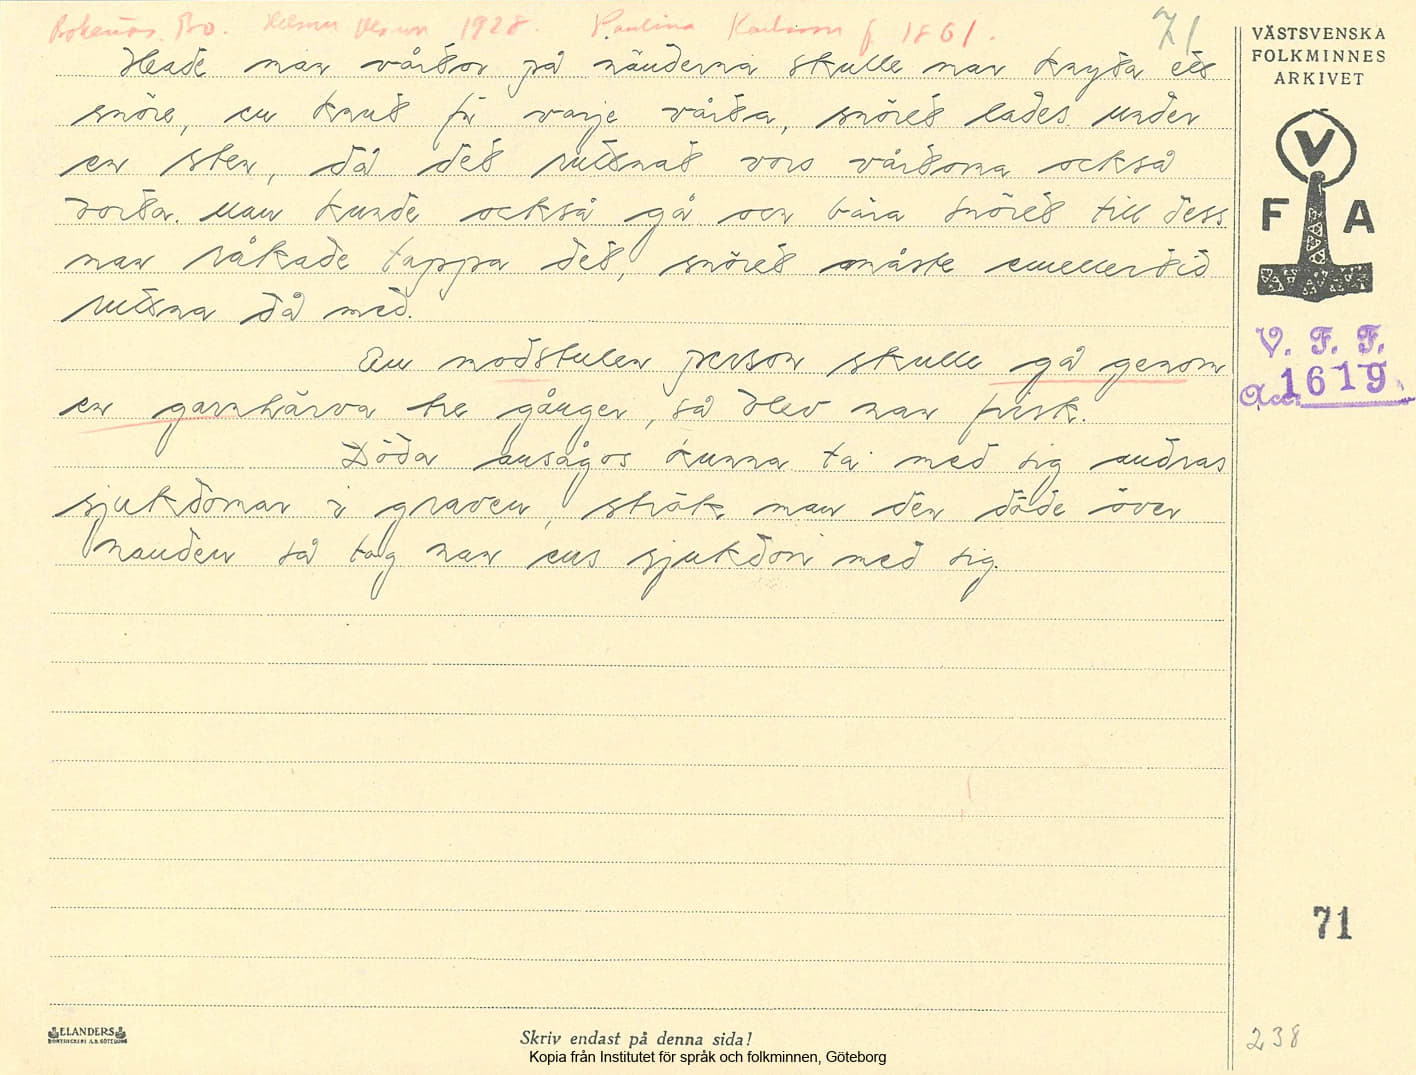 Bokenäs. Bo. Helmer Olsson 1928. Paulina Karlsson f 1861.
71
VÄSTSVENSKA
FOLKMINNES
ARKIVET
Hade man vårtor på händerna skulle man knyta ett
snöre, en knut för varje vårta, snöret lades under
en sten, då det ruttnat voro vårtorna också
borta. Man kunde också gå och bära snöret till dess
man råkade tappa det, snöret måste emellertid
ruttna då med.
En modstulen person skulle gå genom
en garnhärva tre gånger, så blev man frisk.
Döda ansågos kunna ta med sig andras
sjukdomar i graven, strök man den döde över
handen så tog han ens sjukdom med sig.
V
F A
V. F. F.
Acc. 1619
71
ELANDERS
BOKTRYCKERI A.B. GÖTEBORG
Skriv endast på denna sida!
Kopia från Institutet för språk och folkminnen, Göteborg
238